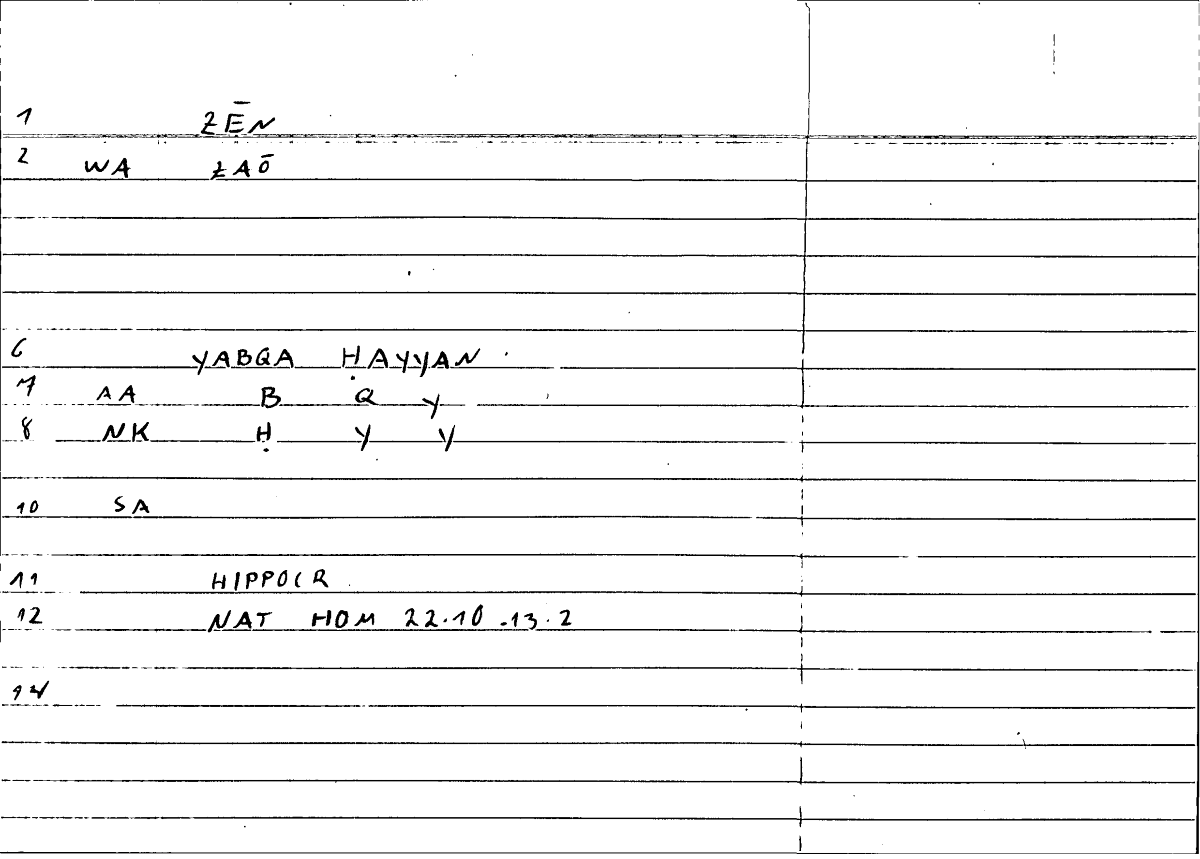 1 ZĒN
2 WA ZAŌ
6 YABQA ḤAYYAN
7 AA B Q Y
8 NK Ḥ Y Y
10 SA
11 HIPPOCR
12 NAT HOM 22.10.13.2
14